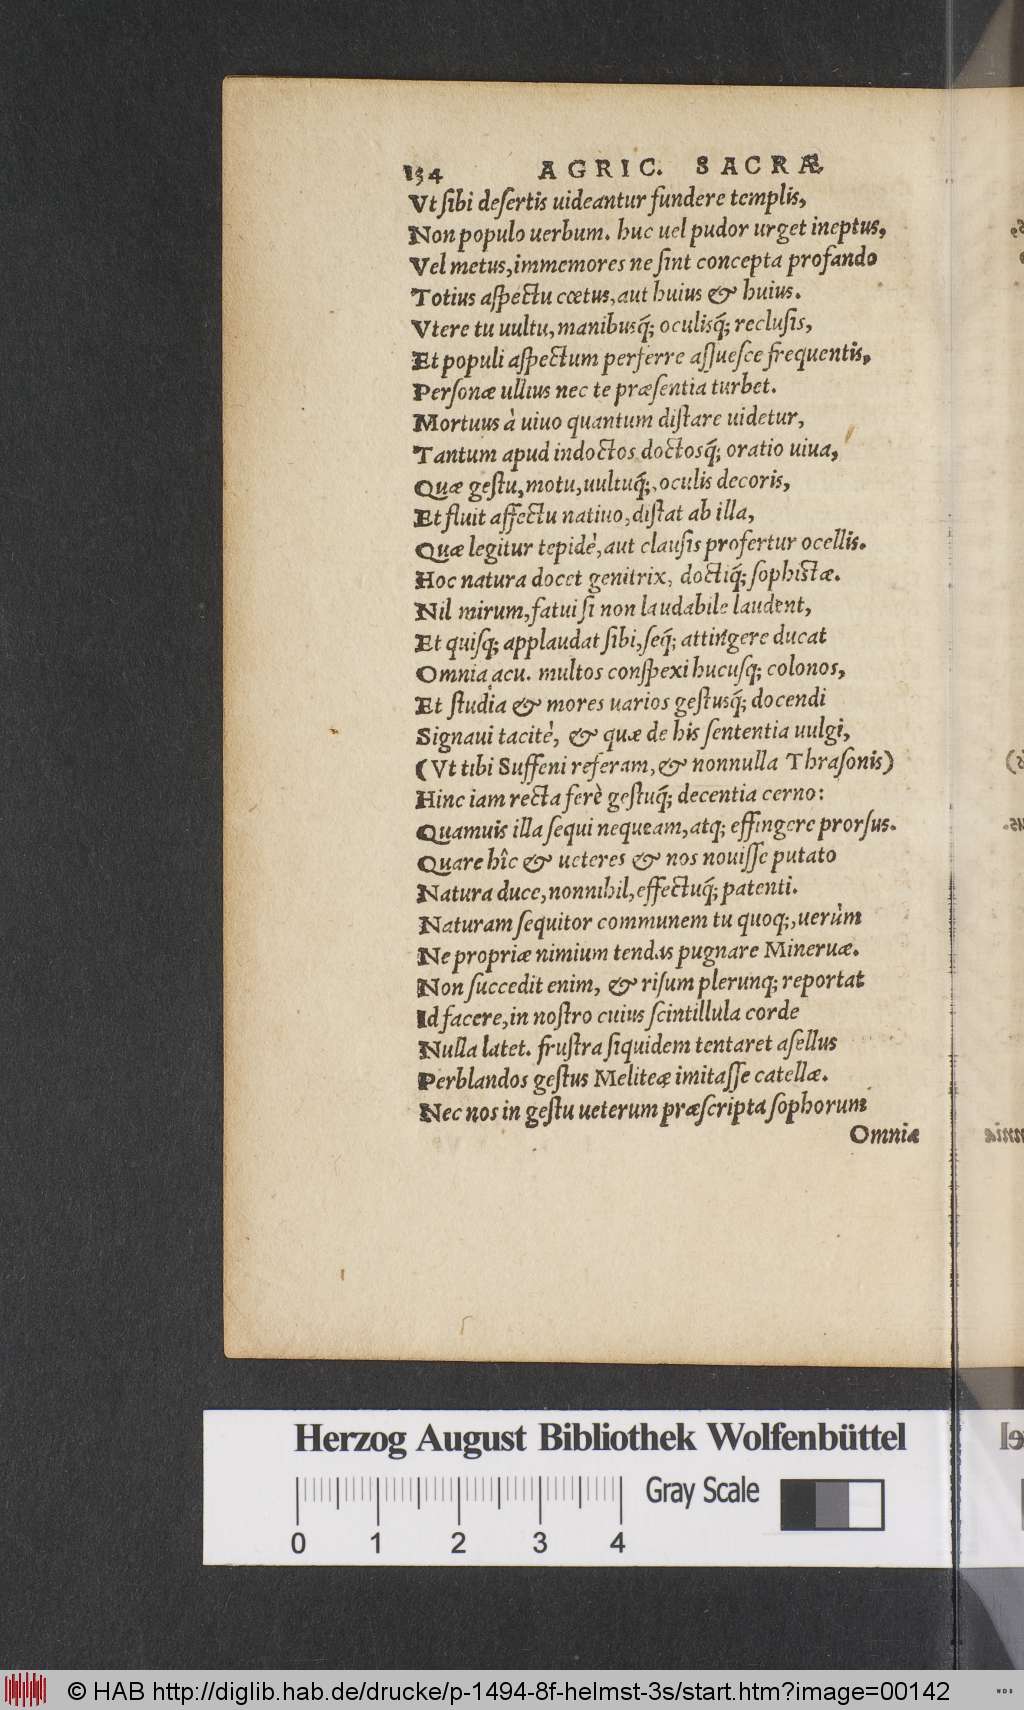 154 AGRIC. SACRÆ
Vt ſibi deſertis uideantur fundere templis,
Non populo uerbum. huc uel pudor urget ineptus,
Vel metus, immemores ne ſint concepta profando
Totius aſpectu cœtus, aut huius & huius.
Vtere tu uultu, manibusq́; oculisq́; recluſis,
Et populi aſpectum perferre aſſueſce frequentis,
Perſonæ ullius nec te præſentia turbet.
Mortuus à uiuo quantum diſtare uidetur,
Tantum apud indoctos doctosq́; oratio uiua,
Quæ geſtu, motu, uultuq́;, oculis decoris,
Et fluit affectu natiuo, diſtat ab illa,
Quæ legitur tepidè, aut clauſis profertur ocellis.
Hoc natura docet genitrix, doctiq́; ſophiſtæ.
Nil mirum, fatui ſi non laudabile laudent,
Et quiſq; applaudat ſibi, ſeq́; attingere ducat
Omnia acu. multos conſpexi hucuſq; colonos,
Et ſtudia & mores uarios geſtusq́; docendi
Signaui tacitè, & quæ de his ſententia uulgi,
(Vt tibi Suffeni referam, & nonnulla Thraſonis)
Hinc iam recta ferè geſtuq́; decentia cerno:
Quamuis illa ſequi nequeam, atq; effingere prorſus.
Quare hîc & ueteres & nos nouiſſe putato
Natura duce, nonnihil, effectuq́; patenti.
Naturam ſequitor communem tu quoq;, uerùm
Ne propriæ nimium tendas pugnare Mineruæ.
Non ſuccedit enim, & riſum plerunq; reportat
Id facere, in noſtro cuius ſcintillula corde
Nulla latet. fruſtra ſiquidem tentaret aſellus
Perblandos geſtus Meliteæ imitaſſe catellæ.
Nec nos in geſtu ueterum præſcripta ſophorum
Omnia
Herzog August Bibliothek Wolfenbüttel
Gray Scale
0 1 2 3 4
© HAB http://diglib.hab.de/drucke/p-1494-8f-helmst-3s/start.htm?image=00142